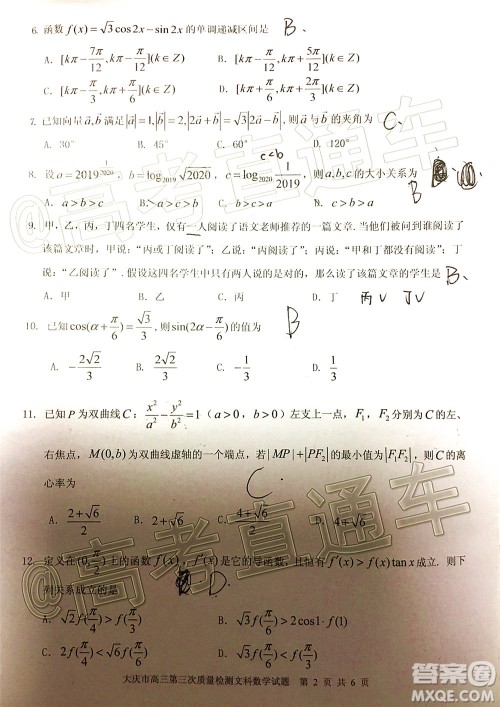 6. 函数 f(x)=√3cos2x−sin2x 的单调递减区间是 B、
A. [kπ−7π/12, kπ−π/12](k∈Z) B. [kπ−5π/12, kπ+π/12](k∈Z)
C. [kπ−π/3, kπ+π/6](k∈Z) D.
7. 已知向量 a,b 满足|a|=1,|b|=2,|2a+b|=√3|2a−b|,则 a 与 b 的夹角为 C、
A. 30° B. 45° C. 60° D. 120°
c<b
8. 设 a=2019^(1/2020), b=log₂₀₁₉√2020, c=log₂₀₂₀ 1/2019, 则 a,b,c 的大小关系为 B
A. a>b>c B. a>c>b C. c>a>b D. c>b>a
9. 甲,乙,丙,丁四名学生,仅有一人阅读了语文老师推荐的一篇文章.当他们被问到谁阅读了
该篇文章时,甲说:“丙或丁阅读了”;乙说:“丙阅读了”;丙说:“甲和丁都没有阅读”;丁
说:“乙阅读了”.假设这四名学生中只有两人说的是对的,那么阅读了该篇文章的学生是 B、
A. 甲 B. 乙 C. 丙 D. 丁 丙∨ 丁∨
10. 已知cos(α+π/6)=√3/3,则sin(2α−π/6)的值为 B
A. −2√2/3 B. 2√2/3 C. −1/3 D. 1/3
11. 已知 P 为双曲线 C: x²/a²−y²/b²=1(a>0,b>0)左支上一点, F₁,F₂分别为 C 的左、
右焦点, M(0,b)为双曲线虚轴的一个端点,若|MP|+|PF₂|的最小值为|F₁F₂|,则 C 的离
心率为 C.
A. (2+√6)/2 B. 2+√6 C. D. 4+√6
12. 定义在(0,π/2)上的函数 f(x), f'(x)是它的导函数,且恒有 f'(x)>f(x)tanx 成立. 则下
列关系成立的是 D.
A. √2f(π/4)>f(π/3) B. √3f(π/6)>2cos1·f(1)
C. 2f(π/4)<√6f(π/6) D. √3f(π/6)<f(π/3)
大庆市高三第三次质量检测文科数学试题 第 2 页 共 6 页
@高考直通车
@高考直通车
作业帮答案
MXQE.COM